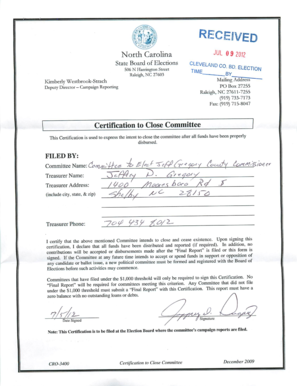 RECEIVED
JUL 09 2012
CLEVELAND CO. BD ELECTION
TIME BY
North Carolina
State Board of Elections
506 N Harrington Street
Raleigh, NC 27603
Kimberly Westbrook-Strach
Deputy Director – Campaign Reporting
Mailing Address
PO Box 27255
Raleigh, NC 27611-7255
(919) 733-7173
Fax: (919) 715-8047
Certification to Close Committee
This Certification is used to express the intent to close the committee after all funds have been properly
disbursed.
FILED BY:
Committee Name: Committee to Elect Jeff Gregory County Commissioner
Treasurer Name: Jeffrey D. Gregory
Treasurer Address: 1400 Mooresboro Rd
(include city, state, & zip) Shelby NC 28150
Treasurer Phone: 704 434
I certify that the above mentioned Committee intends to close and cease existence. Upon signing this
certification, I declare that all funds have been distributed and reported (if required). In addition, no
contributions will be accepted or disbursements made after the "Final Report" is filed or this form is
signed. If the Committee at any future time intends to accept or spend funds in support or opposition of
any candidate or ballot issue, a new political committee must be formed and registered with the Board of
Elections before such activities may commence.
Committees that have filed under the $1,000 threshold will only be required to sign this Certification. No
"Final Report" will be required for committees meeting this criterion. Any Committee that did not file
under the $1,000 threshold must submit a "Final Report" with this Certification. This report must have a
zero balance with no outstanding loans or debts.
7/5/12
Date Signed Signature
Note: This Certification is to be filed at the Election Board where the committee's campaign reports are filed.
CRO-3400 Certification to Close Committee December 2009